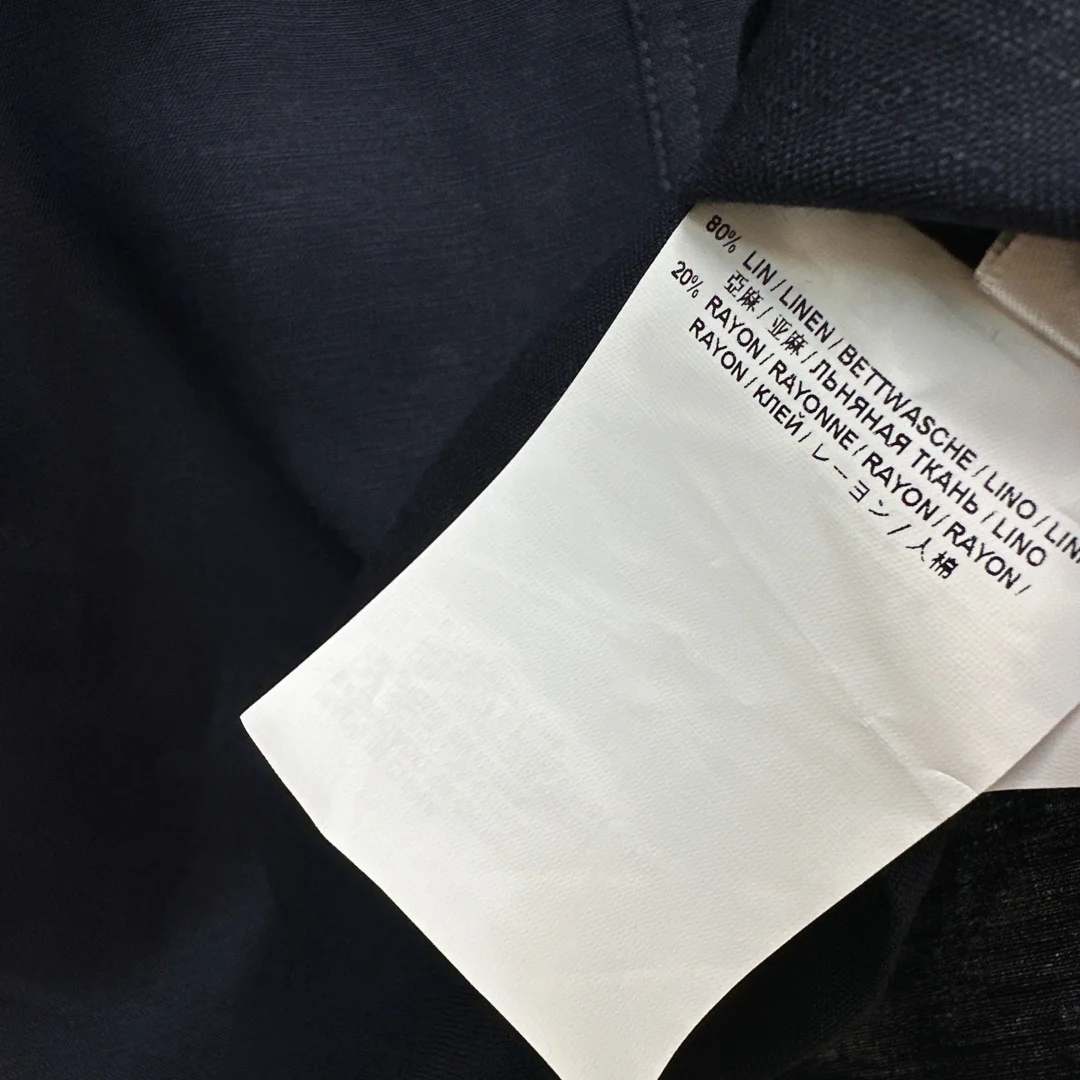 80% LIN / LINEN / BETTWASCHE / LINO /
亞麻 / 亚麻 / ЛЬНЯНАЯ ТКАНЬ / LINO
20% RAYON / RAYONNE / RAYON / RAYON /
RAYON / КЛЕЙ / レーヨン / 人棉